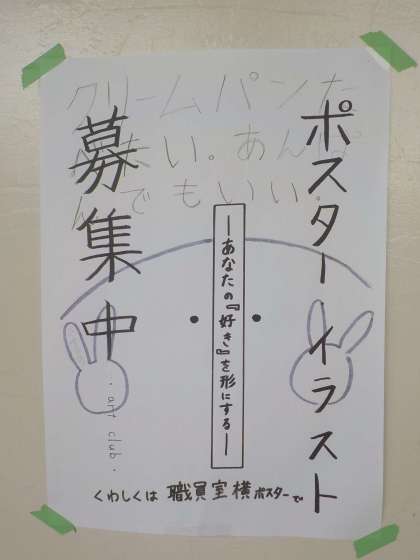 クリームパンた
い。あんぱ
んでもいい。
ポスターイラスト
募集中
―あなたの『好き』を形にする―
・art club・
くわしくは 職員室横ポスターで